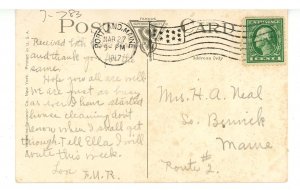 7-783
POST CARD
PORTLAND, MAINE
MAR 27
9-PM
1917
Address Only
1 CENT 1
Received both
and thank you
same.
Hope you all are well.
We are just as busy
as ever I have started
house cleaning don't
know when I shall get
through. Tell Ella I will
write this week.
Love F.U.R.
Mrs. H. A. Neal
So. Berwick
Maine
Route #2.